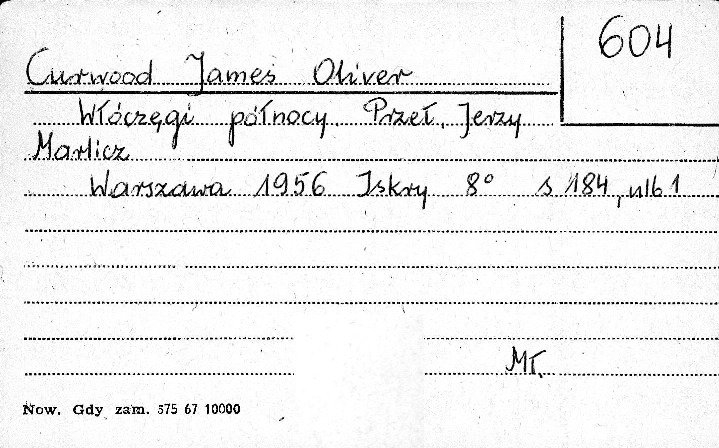 604
Curwood James Oliver
Włóczęgi północy. Przeł. Jerzy
Marlicz
Warszawa 1956 Iskry 8° s 184, nlb 1
Mł.
Now. Gdy zam. 575 67 10000